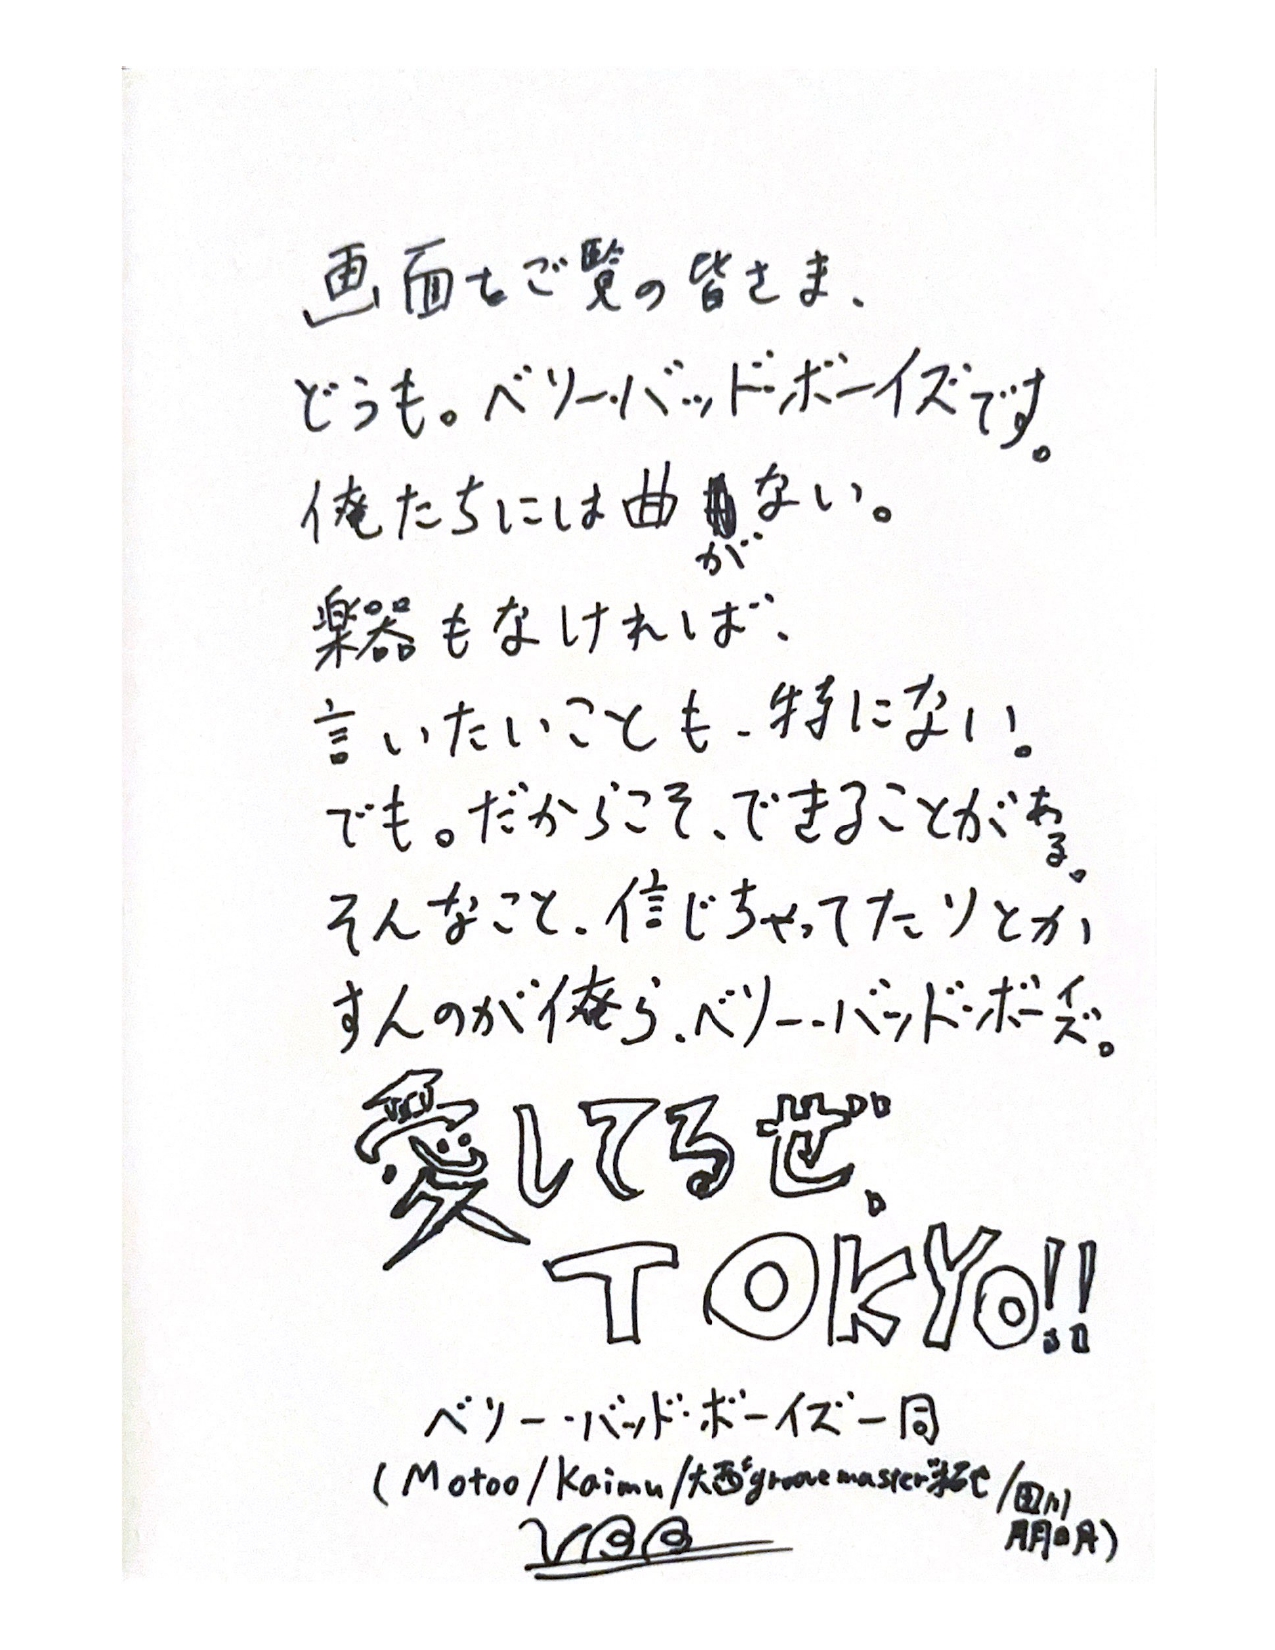 画面をご覧の皆さま、
どうも。ベリー・バッド・ボーイズです。
俺たちには曲がない。
楽器もなければ、
言いたいことも、特にない。
でも。だからこそ、できることがある。
そんなこと、信じちゃってたりとか
すんのが俺ら、ベリー・バッド・ボーイズ。
愛してるぜ、
TOKYO!!
ベリー・バッド・ボーイズ一同
(Motoo/Kaimu/大西"groove master"拓也/田川
朋明)
VBB